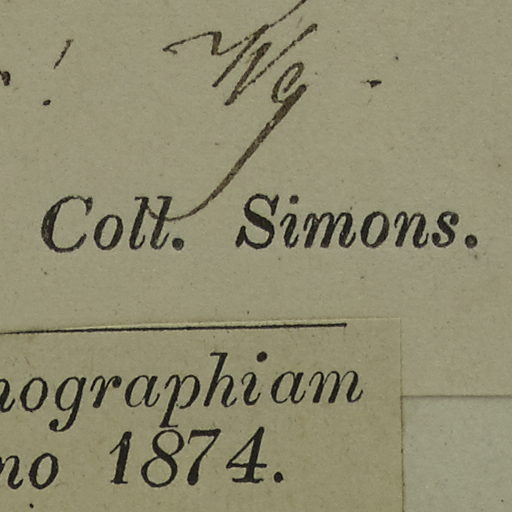 Wg.
Coll. Simons.
nographiam
no 1874.